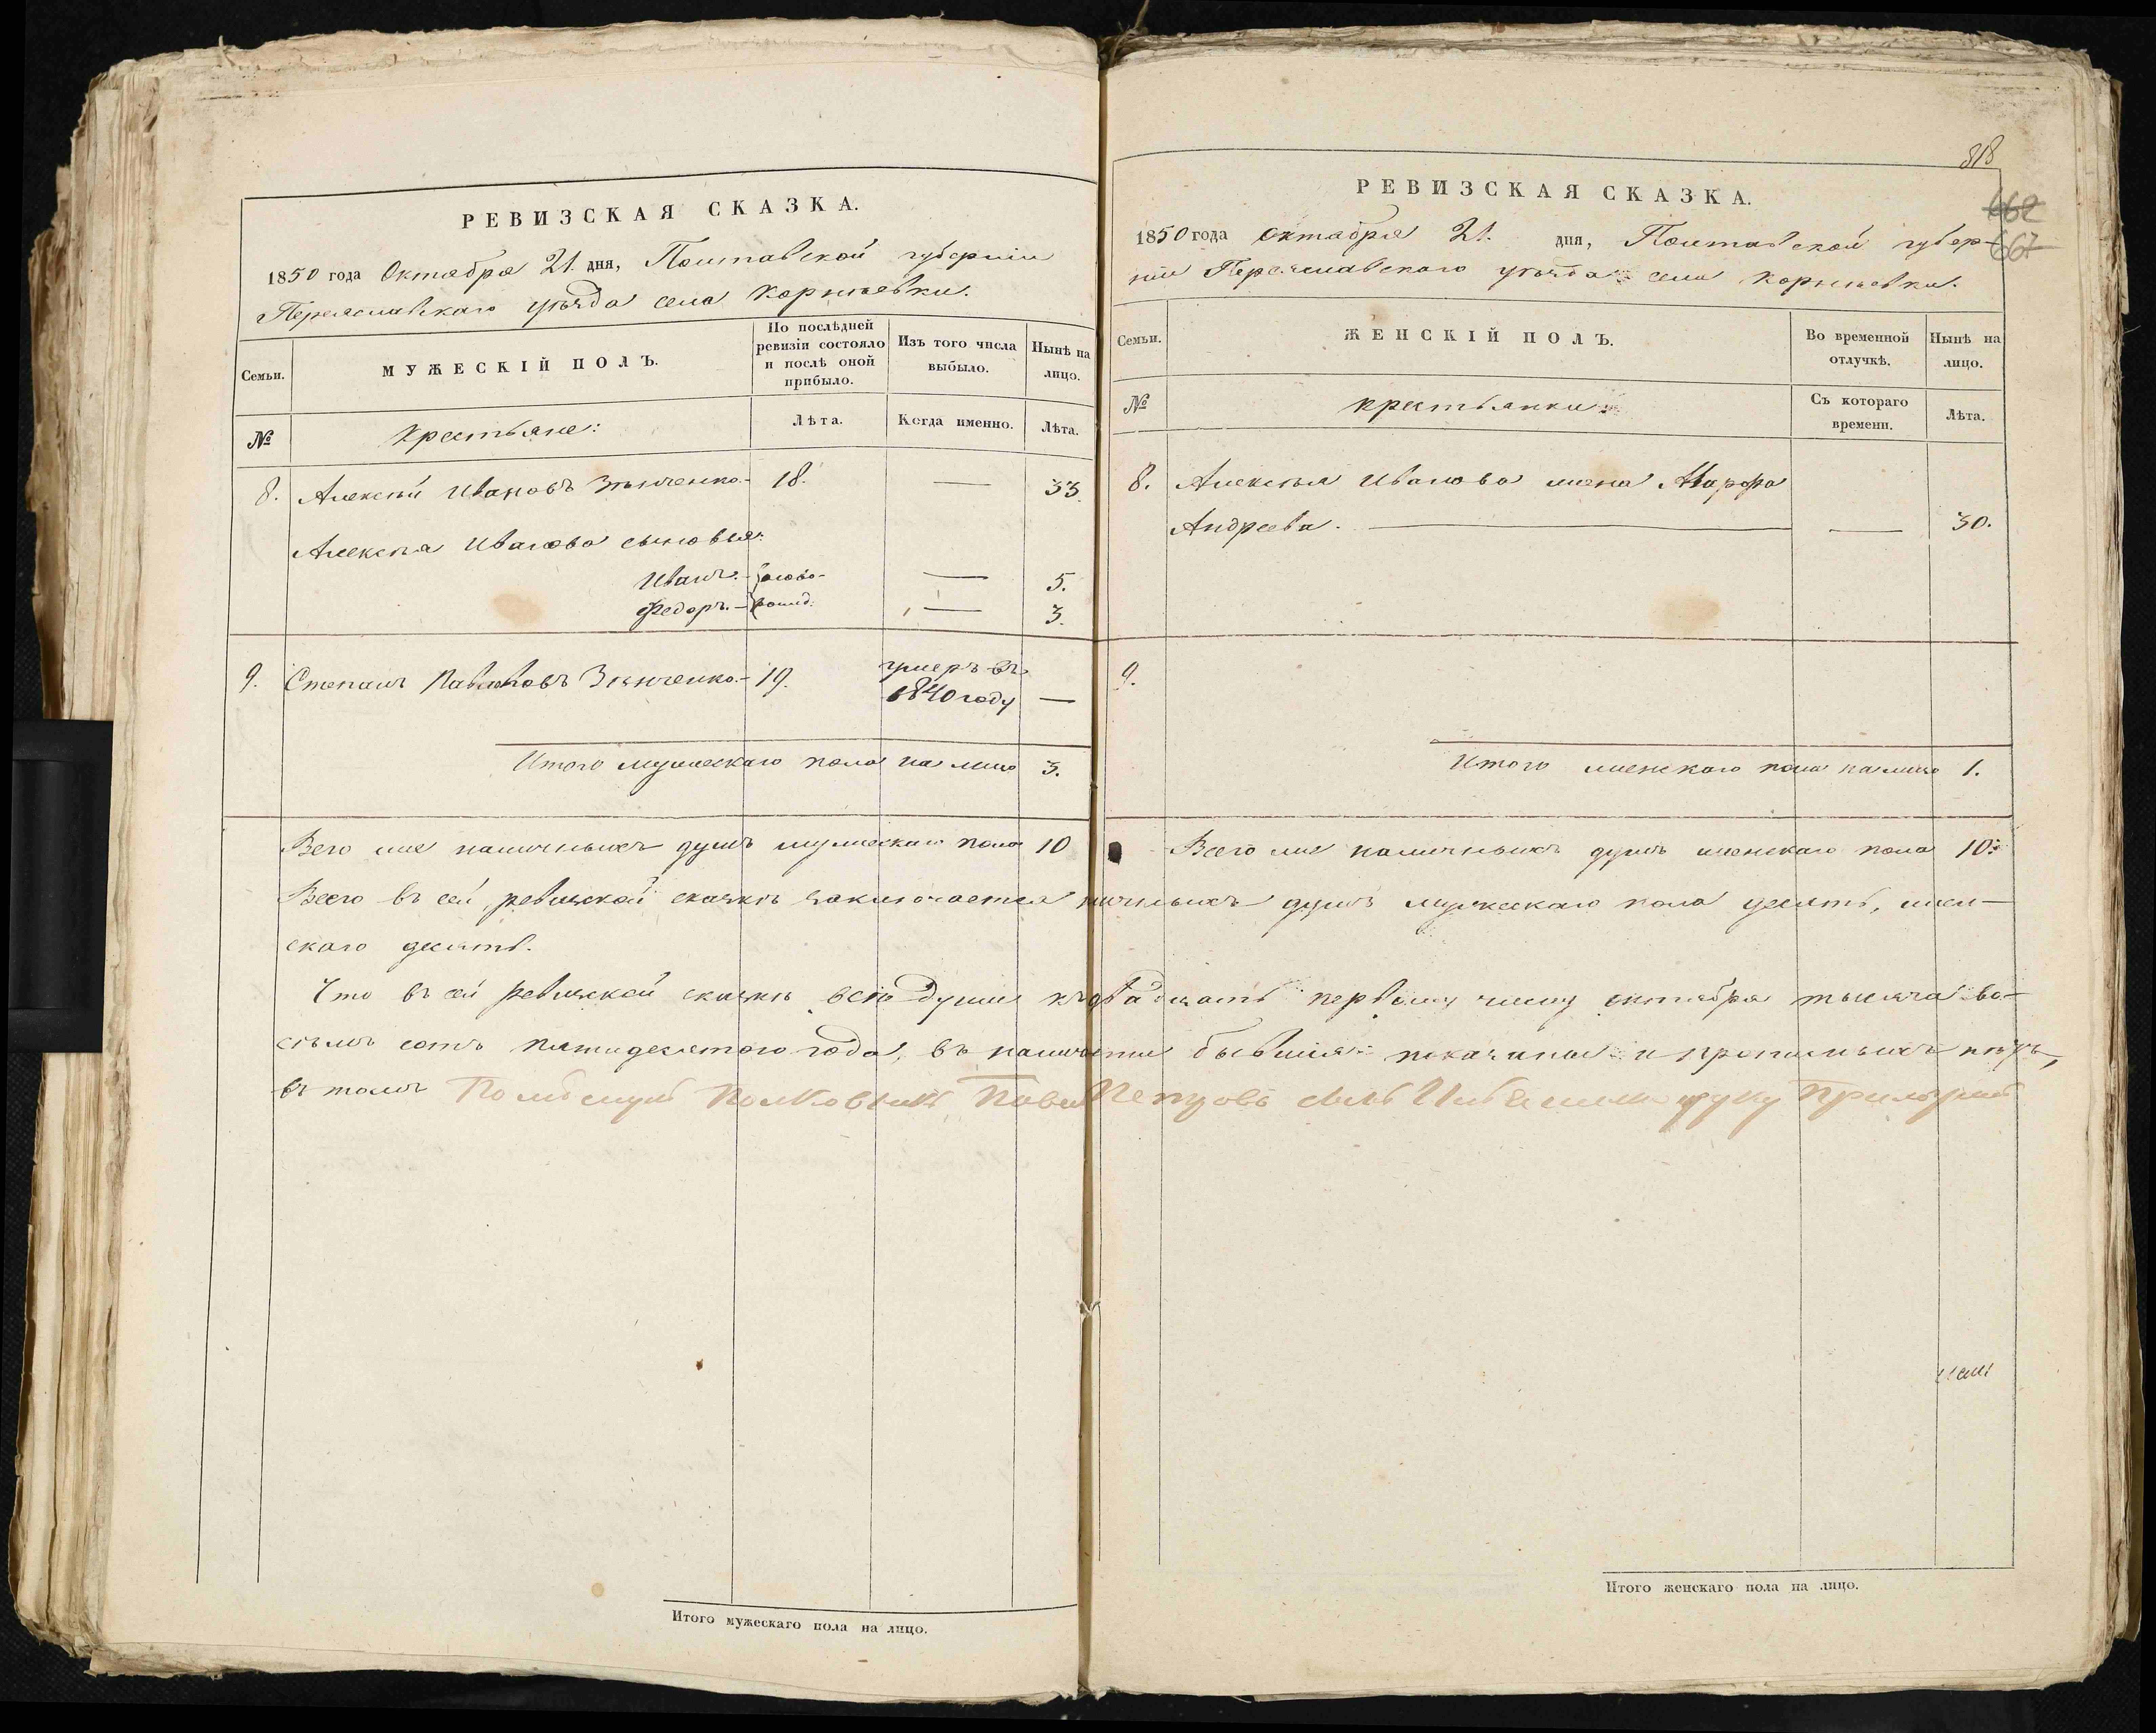 РЕВИЗСКАЯ СКАЗКА.
1850 года Октября 21. дня, Полтавской губернiи
Переяславскаго уѣзда села Корнѣевки.
Семьи.
МУЖЕСКІЙ ПОЛЪ.
По послѣдней
ревизіи состояло
и послѣ оной
прибыло.
Изъ того числа
выбыло.
Нынѣ на
лицо.
№
Крестьяне:
Лѣта.
Когда именно.
Лѣта.
8. Алексѣй Ивановъ Зѣнченко. 18. — 33.
Алексѣя Иванова сыновья:
Иванъ. — ново- — 5.
Федоръ. — рожд. — 3.
9. Степанъ Павловъ Зѣнченко. 19. умеръ въ
1840 году —
Итого мужескаго пола на лицо 3.
Всего же наличныхъ душъ мужескаго пола 10
Итого мужескаго пола на лицо.
818
662
667
РЕВИЗСКАЯ СКАЗКА.
1850 года Октября 21. дня, Полтавской губер-
нiи Переяславскаго уѣзда села Корнѣевки.
Семьи.
ЖЕНСКІЙ ПОЛЪ.
Во временной
отлучкѣ.
Нынѣ на
лицо.
№
Крестьянки
Съ котораго
времени.
Лѣта.
8. Алексѣя Иванова жена Марфа
Андреева. — — 30.
9.
Итого женскаго пола на лицо 1.
Всего же наличныхъ душъ женскаго пола 10.
Всего въ сей ревизской сказкѣ заключается личныхъ душъ мужескаго пола десять, жен-
скаго десять.
Что въ сей ревизской сказкѣ всѣ души къ двадцать первому числу октября тысяча во-
семъ сотъ пятидесятого года, въ наличности бывшiя показаны и прописныхъ нѣтъ,
въ томъ Полковникъ Петровъ сынъ руку
Итого женскаго пола на лицо.